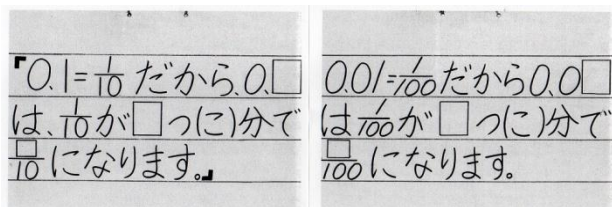 「0.1=1/10 だから、0.□
は、1/10が□つ(こ)分で
□/10 になります。」
0.01=1/100だから0.0□
は1/100が□つ(こ)分で
□/100になります。